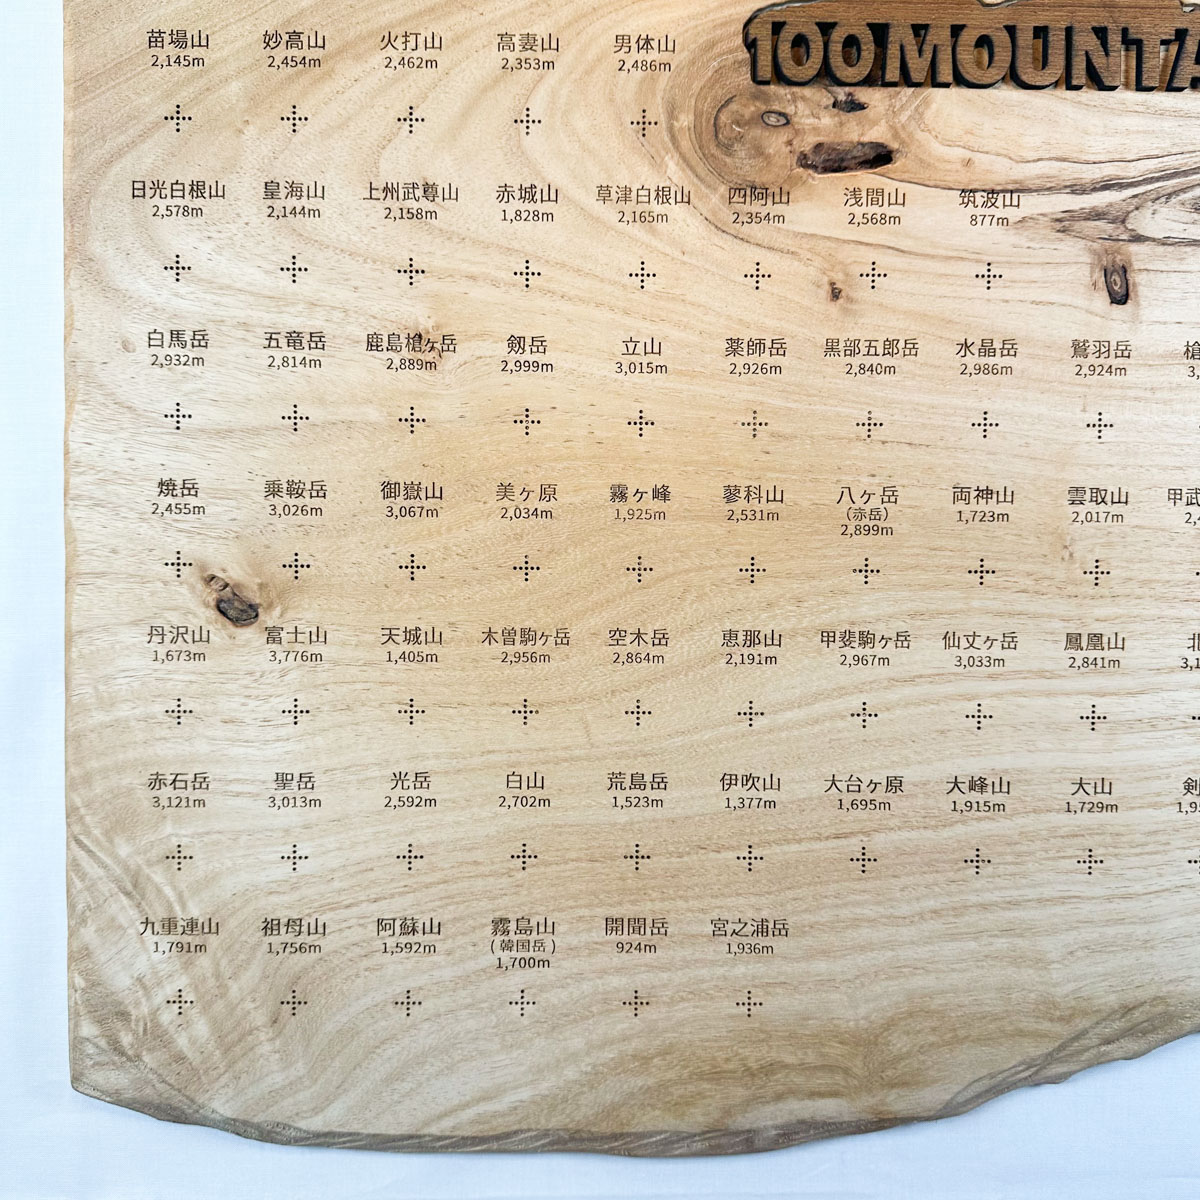 100MOUNTA
苗場山 妙高山 火打山 高妻山 男体山
2,145m 2,454m 2,462m 2,353m 2,486m
日光白根山 皇海山 上州武尊山 赤城山 草津白根山 四阿山 浅間山 筑波山
2,578m 2,144m 2,158m 1,828m 2,165m 2,354m 2,568m 877m
白馬岳 五竜岳 鹿島槍ヶ岳 剱岳 立山 薬師岳 黒部五郎岳 水晶岳 鷲羽岳 槍
2,932m 2,814m 2,889m 2,999m 3,015m 2,926m 2,840m 2,986m 2,924m 3,
焼岳 乗鞍岳 御嶽山 美ヶ原 霧ヶ峰 蓼科山 八ヶ岳 両神山 雲取山 甲武
(赤岳)
2,455m 3,026m 3,067m 2,034m 1,925m 2,531m 2,899m 1,723m 2,017m 2,4
丹沢山 富士山 天城山 木曽駒ヶ岳 空木岳 恵那山 甲斐駒ヶ岳 仙丈ヶ岳 鳳凰山 北
1,673m 3,776m 1,405m 2,956m 2,864m 2,191m 2,967m 3,033m 2,841m 3,1
赤石岳 聖岳 光岳 白山 荒島岳 伊吹山 大台ヶ原 大峰山 大山 剣
3,121m 3,013m 2,592m 2,702m 1,523m 1,377m 1,695m 1,915m 1,729m 1,95
九重連山 祖母山 阿蘇山 霧島山 開聞岳 宮之浦岳
(韓国岳)
1,791m 1,756m 1,592m 1,700m 924m 1,936m